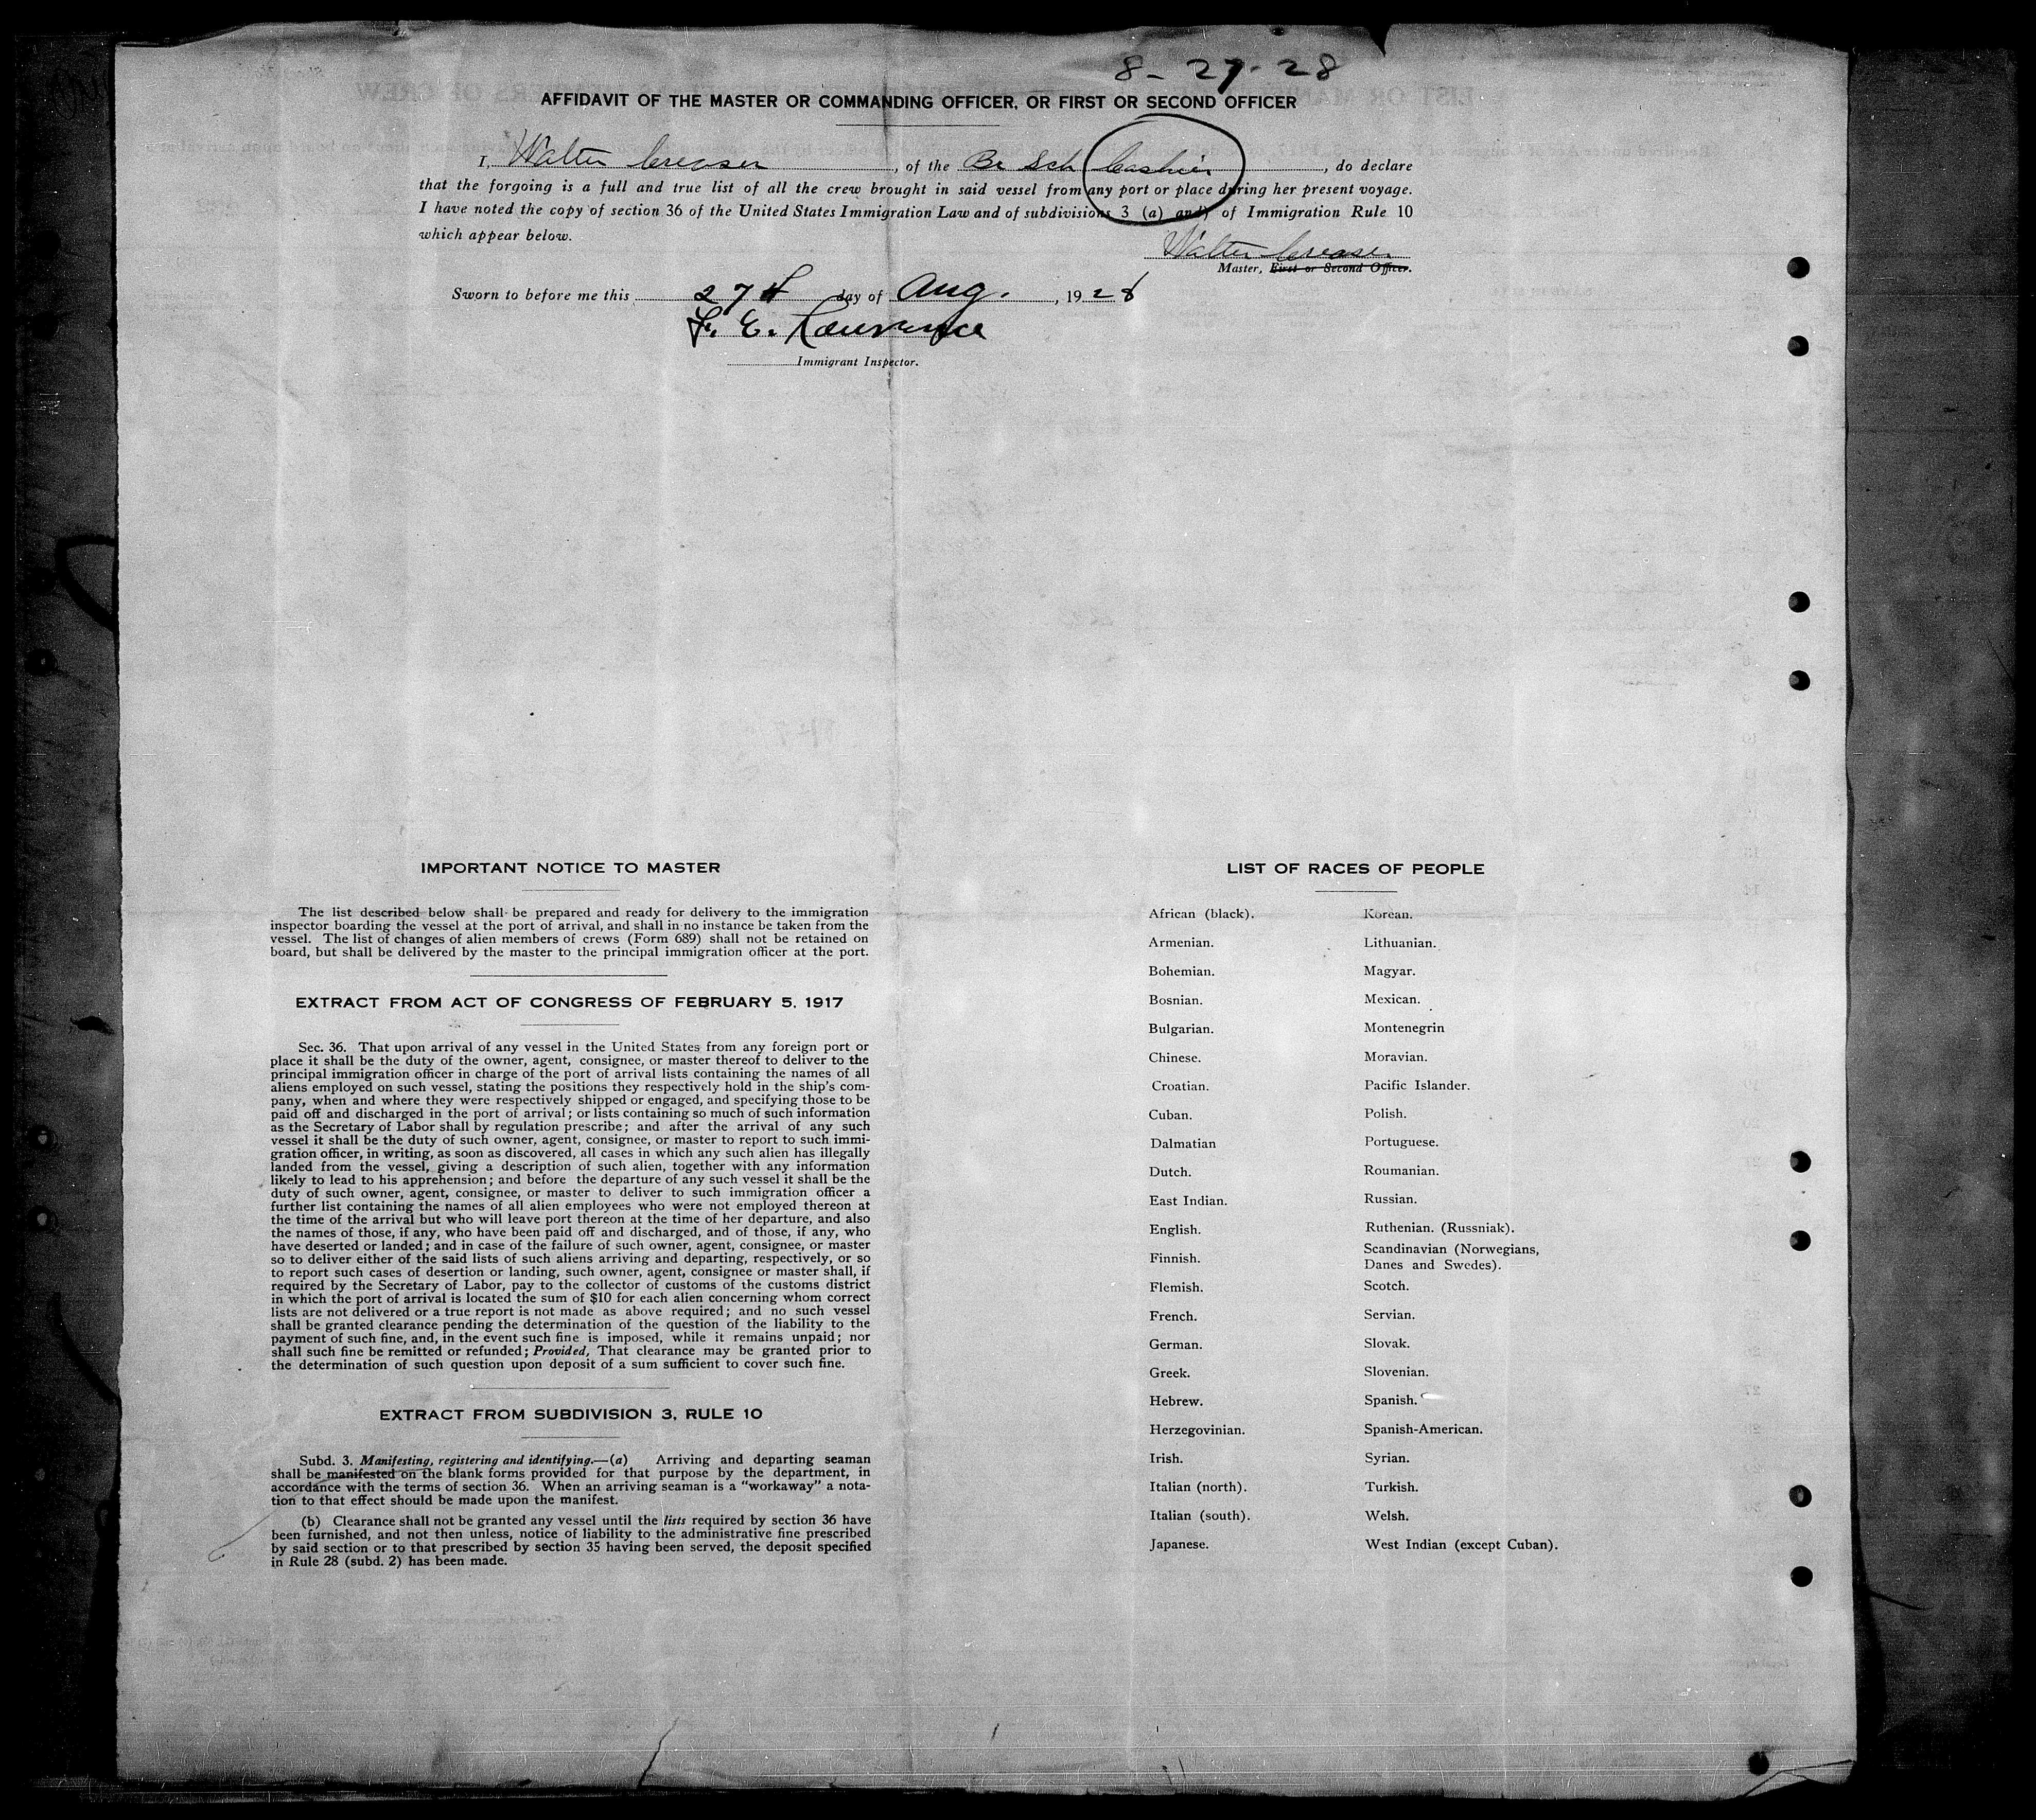 8-27-28
AFFIDAVIT OF THE MASTER OR COMMANDING OFFICER, OR FIRST OR SECOND OFFICER
I, Walter Creaser, of the Br Sch Cashier, do declare
that the forgoing is a full and true list of all the crew brought in said vessel from any port or place during her present voyage.
I have noted the copy of section 36 of the United States Immigration Law and of subdivisions 3 (a) and) of Immigration Rule 10
which appear below.
Walter Creaser
Master, First or Second Officer.
Sworn to before me this 27th day of Aug., 1928
F. E. Lawrence
Immigrant Inspector.
IMPORTANT NOTICE TO MASTER
The list described below shall be prepared and ready for delivery to the immigration
inspector boarding the vessel at the port of arrival, and shall in no instance be taken from the
vessel. The list of changes of alien members of crews (Form 689) shall not be retained on
board, but shall be delivered by the master to the principal immigration officer at the port.
EXTRACT FROM ACT OF CONGRESS OF FEBRUARY 5, 1917
Sec. 36. That upon arrival of any vessel in the United States from any foreign port or
place it shall be the duty of the owner, agent, consignee, or master thereof to deliver to the
principal immigration officer in charge of the port of arrival lists containing the names of all
aliens employed on such vessel, stating the positions they respectively hold in the ship's com-
pany, when and where they were respectively shipped or engaged, and specifying those to be
paid off and discharged in the port of arrival; or lists containing so much of such information
as the Secretary of Labor shall by regulation prescribe; and after the arrival of any such
vessel it shall be the duty of such owner, agent, consignee, or master to report to such immi-
gration officer, in writing, as soon as discovered, all cases in which any such alien has illegally
landed from the vessel, giving a description of such alien, together with any information
likely to lead to his apprehension; and before the departure of any such vessel it shall be the
duty of such owner, agent, consignee, or master to deliver to such immigration officer a
further list containing the names of all alien employees who were not employed thereon at
the time of the arrival but who will leave port thereon at the time of her departure, and also
the names of those, if any, who have been paid off and discharged, and of those, if any, who
have deserted or landed; and in case of the failure of such owner, agent, consignee, or master
so to deliver either of the said lists of such aliens arriving and departing, respectively, or so
to report such cases of desertion or landing, such owner, agent, consignee or master shall, if
required by the Secretary of Labor, pay to the collector of customs of the customs district
in which the port of arrival is located the sum of $10 for each alien concerning whom correct
lists are not delivered or a true report is not made as above required; and no such vessel
shall be granted clearance pending the determination of the question of the liability to the
payment of such fine, and, in the event such fine is imposed, while it remains unpaid; nor
shall such fine be remitted or refunded; Provided, That clearance may be granted prior to
the determination of such question upon deposit of a sum sufficient to cover such fine.
EXTRACT FROM SUBDIVISION 3, RULE 10
Subd. 3. Manifesting, registering and identifying.—(a) Arriving and departing seaman
shall be manifested on the blank forms provided for that purpose by the department, in
accordance with the terms of section 36. When an arriving seaman is a "workaway" a nota-
tion to that effect should be made upon the manifest.
(b) Clearance shall not be granted any vessel until the lists required by section 36 have
been furnished, and not then unless, notice of liability to the administrative fine prescribed
by said section or to that prescribed by section 35 having been served, the deposit specified
in Rule 28 (subd. 2) has been made.
LIST OF RACES OF PEOPLE
African (black).
Armenian.
Bohemian.
Bosnian.
Bulgarian.
Chinese.
Croatian.
Cuban.
Dalmatian
Dutch.
East Indian.
English.
Finnish.
Flemish.
French.
German.
Greek.
Hebrew.
Herzegovinian.
Irish.
Italian (north).
Italian (south).
Japanese.
Korean.
Lithuanian.
Magyar.
Mexican.
Montenegrin
Moravian.
Pacific Islander.
Polish.
Portuguese.
Roumanian.
Russian.
Ruthenian. (Russniak).
Scandinavian (Norwegians,
Danes and Swedes).
Scotch.
Servian.
Slovak.
Slovenian.
Spanish.
Spanish-American.
Syrian.
Turkish.
Welsh.
West Indian (except Cuban).